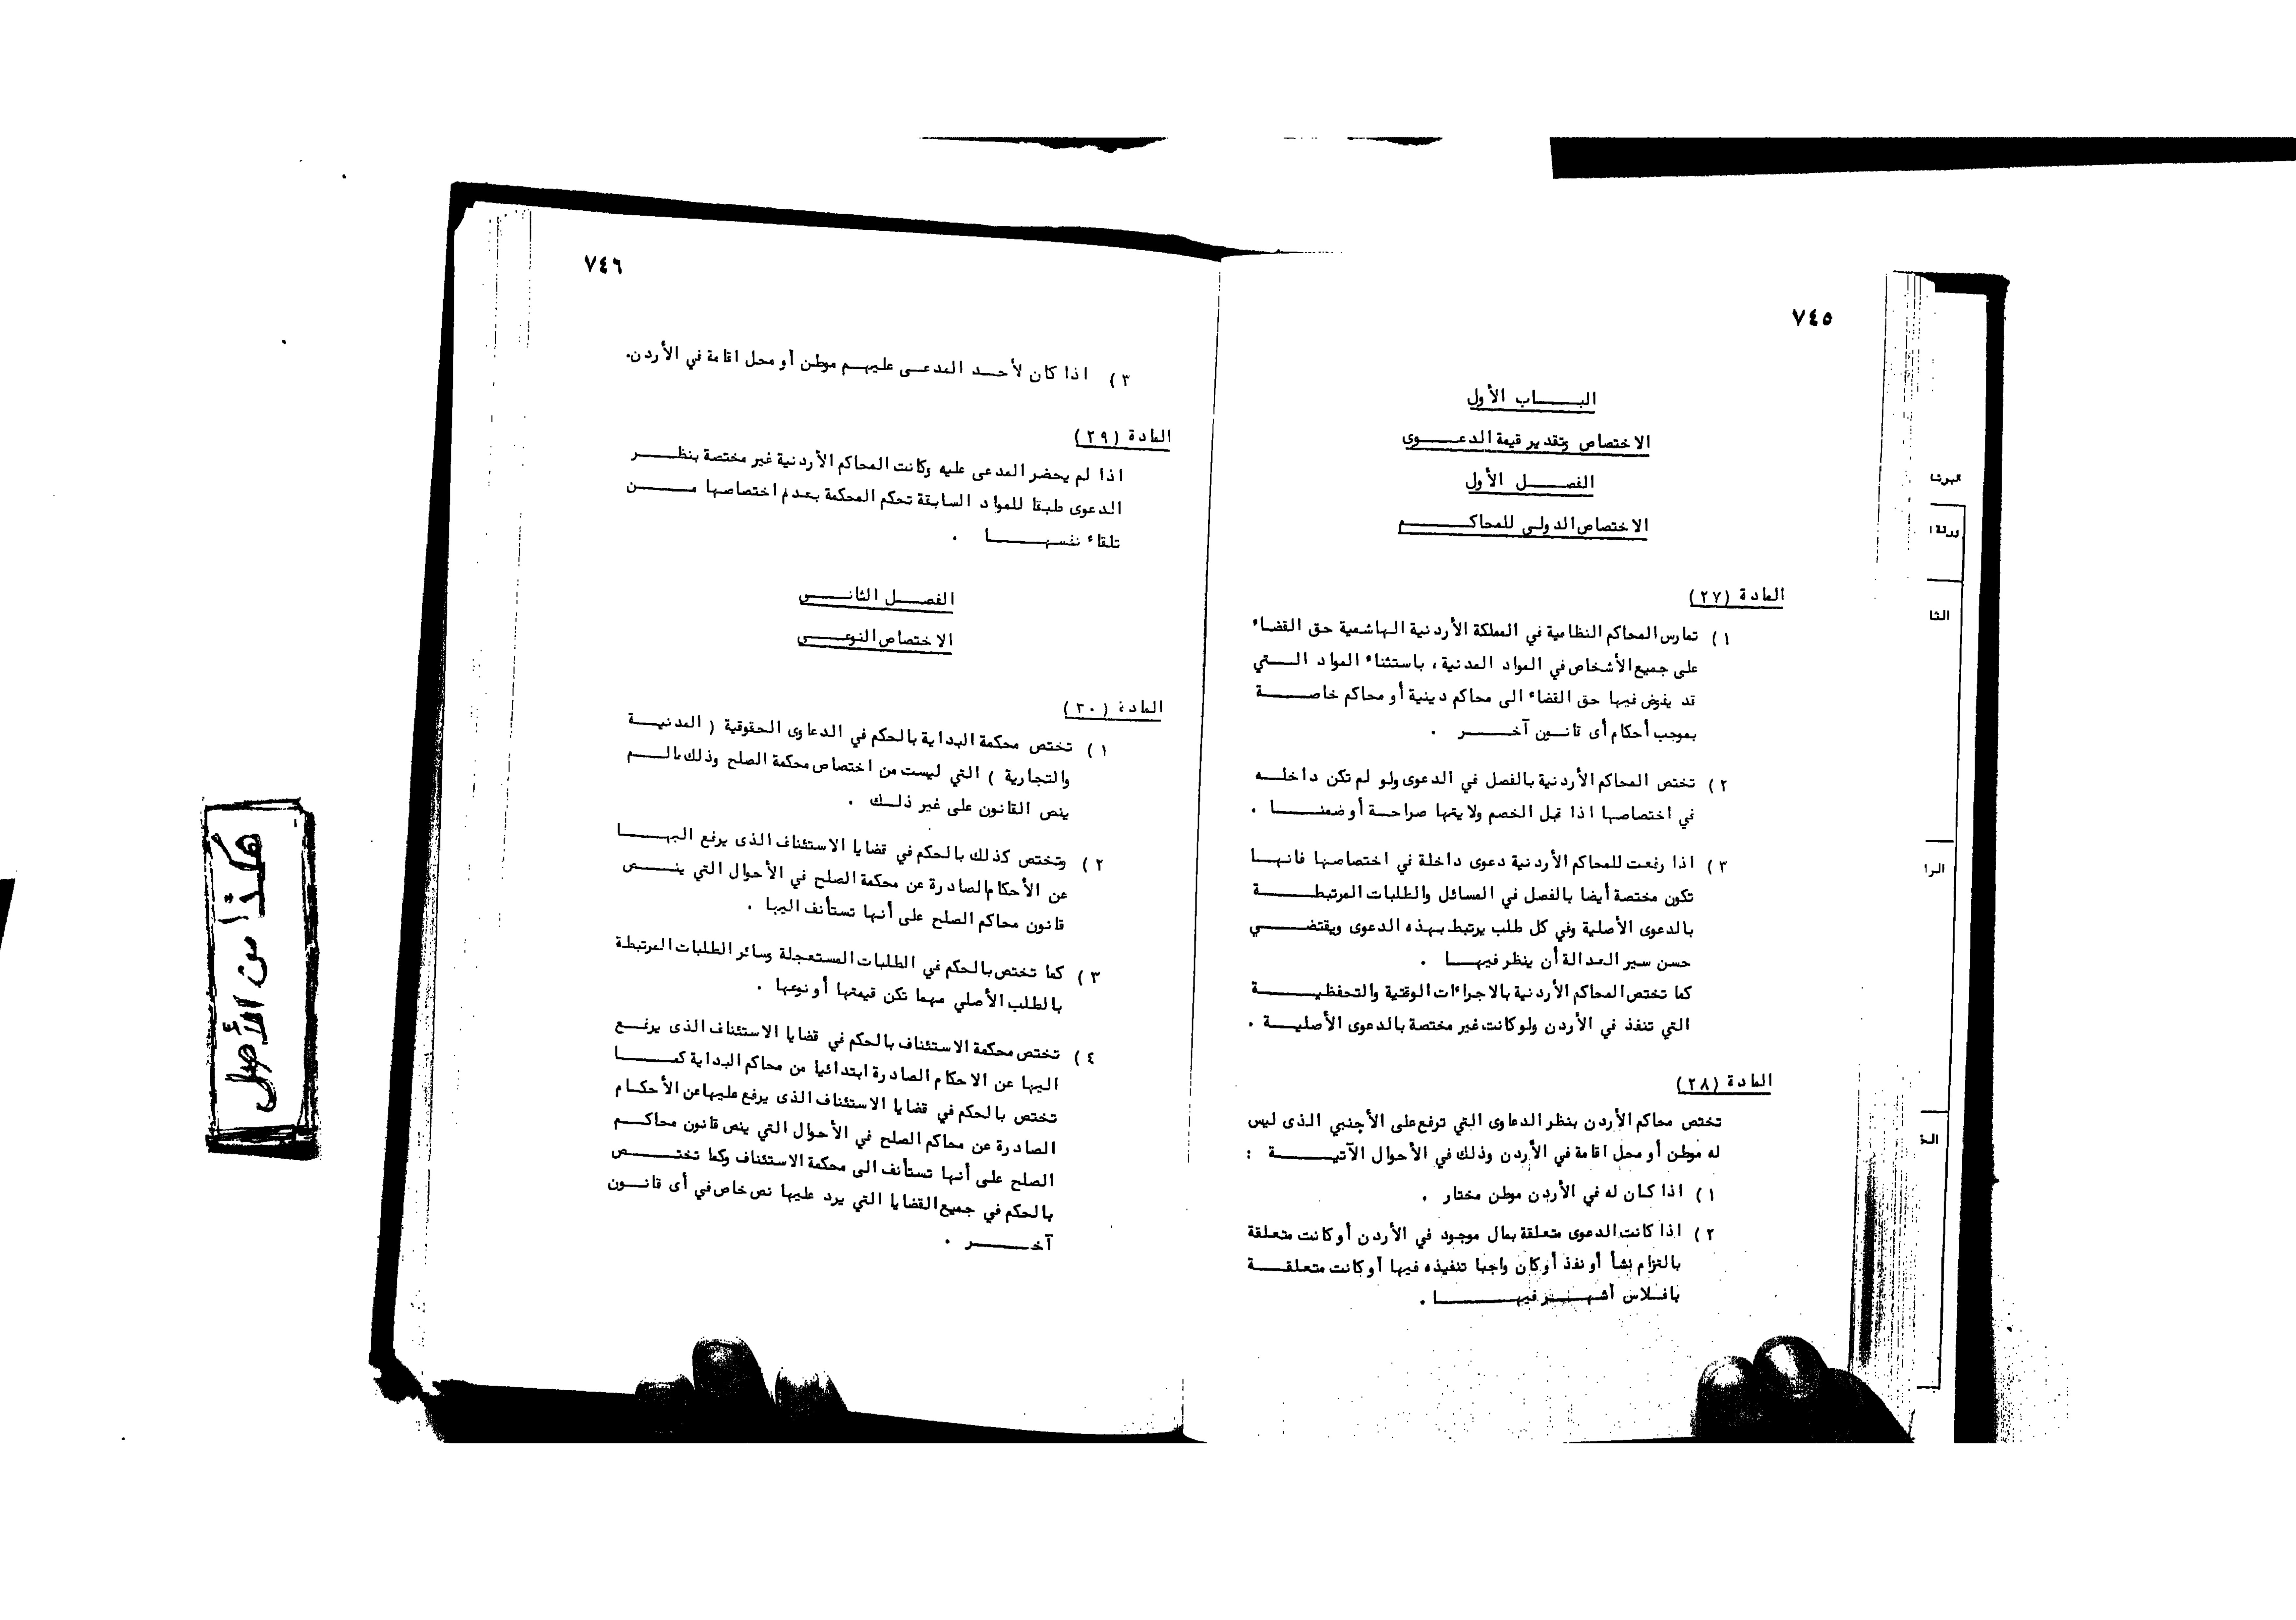 ٧٤٥
الباب الأول
الاختصاص وتقدير قيمة الدعوى
الفصل الأول
الاختصاص الدولي للمحاكم
المادة (٢٧)
١) تمارس المحاكم النظامية في المملكة الأردنية الهاشمية حق القضاء
على جميع الأشخاص في المواد المدنية ، باستثناء المواد التي
قد يفوض فيها حق القضاء الى محاكم دينية أو محاكم خاصة
بموجب أحكام أى قانون آخر .
٢) تختص المحاكم الأردنية بالفصل في الدعوى ولو لم تكن داخله
في اختصاصها اذا قبل الخصم ولايتها صراحة أو ضمنا .
٣) اذا رفعت للمحاكم الأردنية دعوى داخلة في اختصاصها فانها
تكون مختصة أيضا بالفصل في المسائل والطلبات المرتبطة
بالدعوى الأصلية وفي كل طلب يرتبط بهذه الدعوى ويقتضي
حسن سير العدالة أن ينظر فيها .
كما تختص المحاكم الأردنية بالاجراءات الوقتية والتحفظية
التي تنفذ في الأردن ولو كانت غير مختصة بالدعوى الأصلية .
المادة (٢٨)
تختص محاكم الأردن بنظر الدعاوى التي ترفع على الأجنبي الذى ليس
له موطن أو محل اقامة في الأردن وذلك في الأحوال الآتية :
١) اذا كان له في الأردن موطن مختار .
٢) اذا كانت الدعوى متعلقة بمال موجود في الأردن أو كانت متعلقة
بالتزام نشأ أو نفذ أو كان واجبا تنفيذه فيها أو كانت متعلقة
بافلاس أشهر فيها .
٧٤٦
٣) اذا كان لأحد المدعى عليهم موطن أو محل اقامة في الأردن.
المادة (٢٩)
اذا لم يحضر المدعى عليه وكانت المحاكم الأردنية غير مختصة بنظر
الدعوى طبقا للمواد السابقة تحكم المحكمة بعدم اختصاصها من
تلقاء نفسها .
الفصل الثاني
الاختصاص النوعي
المادة (٣٠)
١) تختص محكمة البداية بالحكم في الدعاوى الحقوقية ( المدنية
والتجارية ) التي ليست من اختصاص محكمة الصلح وذلك مالم
ينص القانون على غير ذلك .
٢) وتختص كذلك بالحكم في قضايا الاستئناف الذى يرفع اليها
عن الأحكام الصادرة عن محكمة الصلح في الأحوال التي ينص
قانون محاكم الصلح على أنها تستأنف اليها .
٣) كما تختص بالحكم في الطلبات المستعجلة وسائر الطلبات المرتبطة
بالطلب الأصلي مهما تكن قيمتها أو نوعها .
٤) تختص محكمة الاستئناف بالحكم في قضايا الاستئناف الذى يرفع
اليها عن الاحكام الصادرة ابتدائيا من محاكم البداية كما
تختص بالحكم في قضايا الاستئناف الذى يرفع عليها عن الأحكام
الصادرة عن محاكم الصلح في الأحوال التي ينص قانون محاكم
الصلح على أنها تستأنف الى محكمة الاستئناف وكما تختص
بالحكم في جميع القضايا التي يرد عليها نص خاص في أى قانون
آخر .
هكذا من الأصل